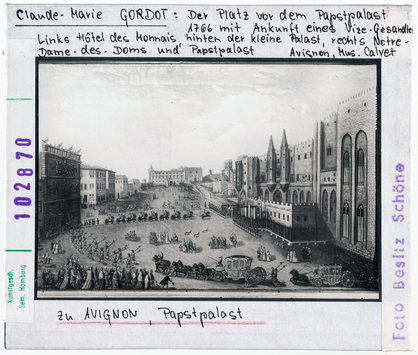 Claude-Marie GORDOT: Der Platz vor dem Papstpalast
1766 mit Ankunft eines Vize-Gesandten
Links Hôtel des Monnais hinten der kleine Palast, rechts Notre-
Dame-des-Doms und Papstpalast Avignon, Mus. Calvet
102870
Kunstgesch.
Sem. Hamburg
Foto Beslitz Schöne
zu AVIGNON, Papstpalast